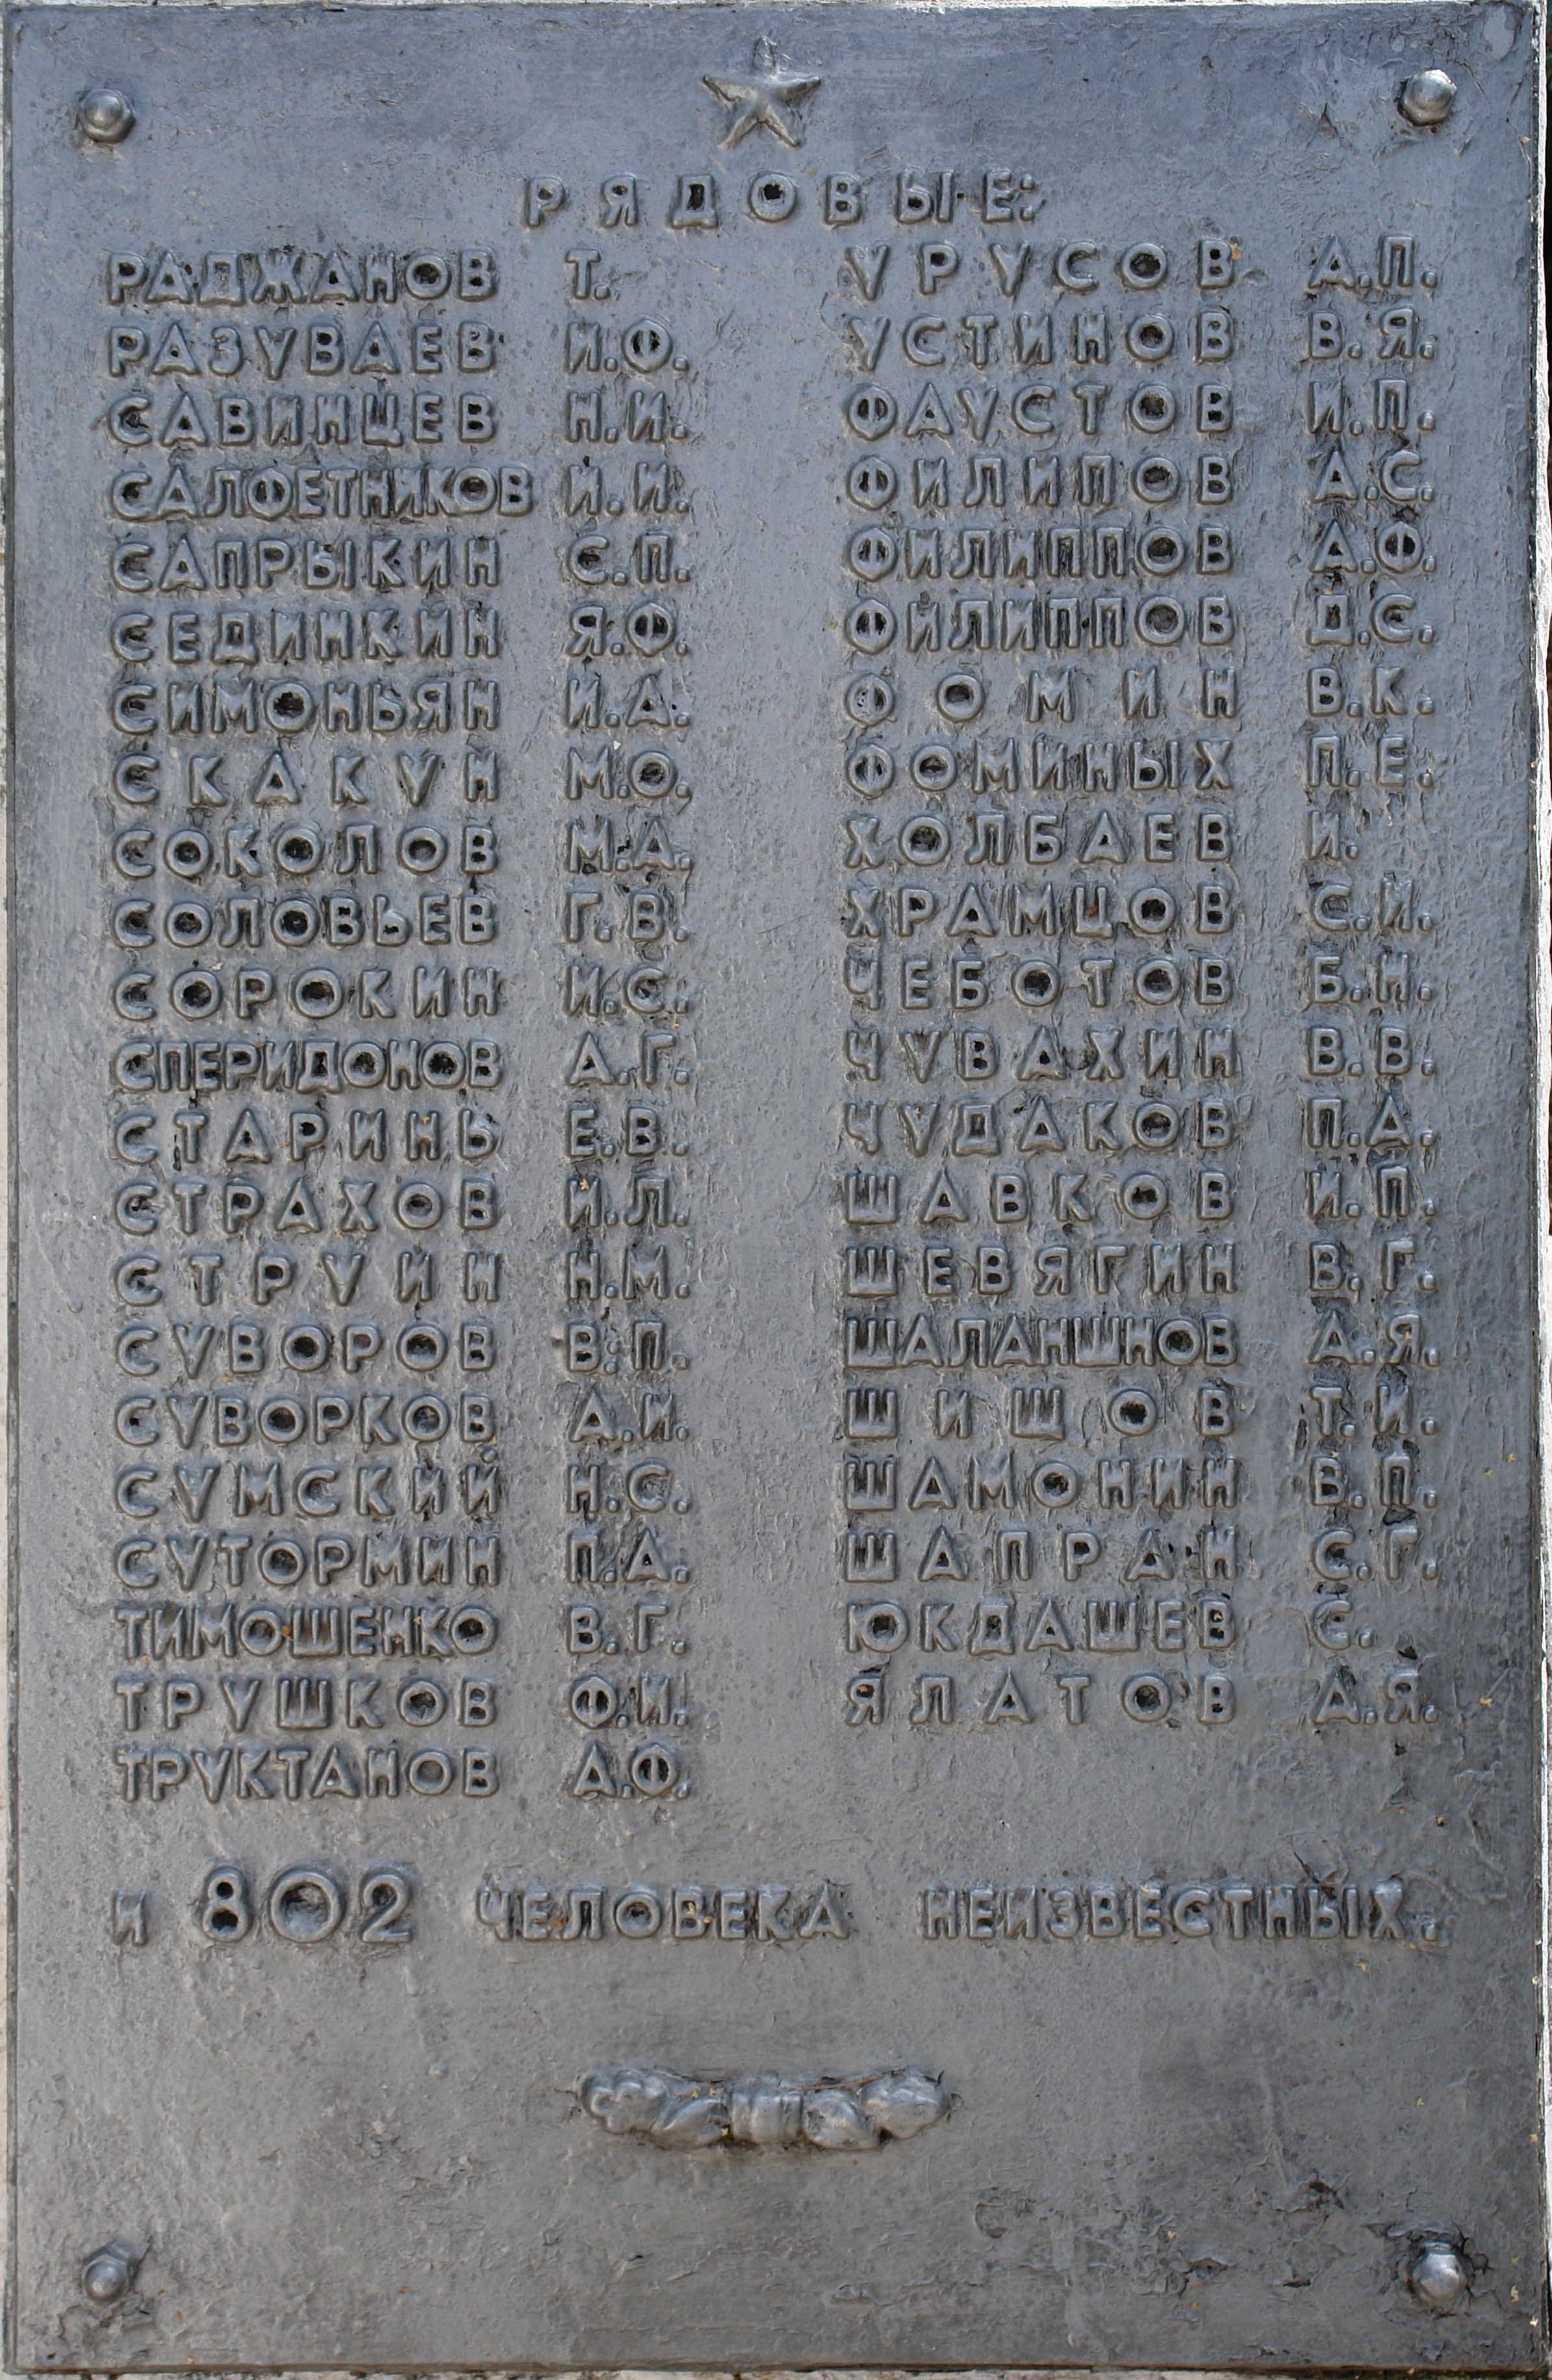 РЯДОВЫЕ:
РАДЖАНОВ Т.
РАЗУВАЕВ И.Ф.
САВИНЦЕВ Н.И.
САЛФЕТНИКОВ И.И.
САПРЫКИН С.П.
СЕДИНКИН Я.Ф.
СИМОНЬЯН И.А.
СКАКУН М.О.
СОКОЛОВ М.А.
СОЛОВЬЕВ Г.В.
СОРОКИН И.С.
СПЕРИДОНОВ А.Г.
СТАРИНЬ Е.В.
СТРАХОВ И.Л.
СТРУИН Н.М.
СУВОРОВ В.П.
СУВОРКОВ А.И.
СУМСКИЙ Н.С.
СУТОРМИН П.А.
ТИМОШЕНКО В.Г.
ТРУШКОВ Ф.И.
ТРУКТАНОВ А.Ф.
УРУСОВ А.П.
УСТИНОВ В.Я.
ФАУСТОВ И.П.
ФИЛИПОВ А.С.
ФИЛИППОВ А.Ф.
ФИЛИППОВ Д.С.
ФОМИН В.К.
ФОМИНЫХ П.Е.
ХОЛБАЕВ И.
ХРАМЦОВ С.И.
ЧЕБОТОВ Б.Н.
ЧУВАХИН В.В.
ЧУДАКОВ П.А.
ШАВКОВ И.П.
ШЕВЯГИН В.Г.
ШАЛАНШНОВ А.Я.
ШИШОВ Т.И.
ШАМОНИН В.П.
ШАПРАН С.Г.
ЮКДАШЕВ С.
ЯЛАТОВ А.Я.
и 802 ЧЕЛОВЕКА НЕИЗВЕСТНЫХ.